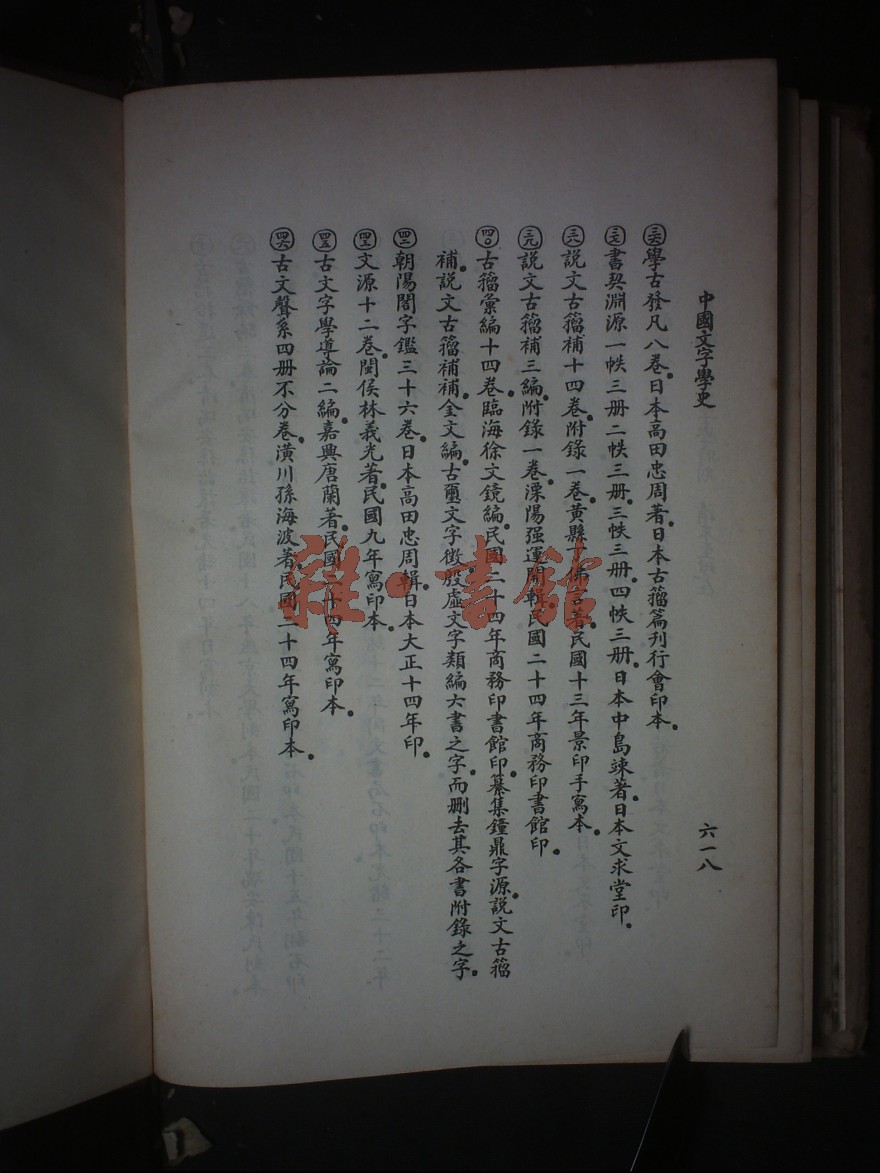 中國文字學史
六一八
㊱學古發凡八卷。日本高田忠周著。日本古籀篇刊行會印本。
㊲書契淵源一帙三册。二帙三册。三帙三册。四帙三册。日本中島竦著。日本文求堂印。
㊳説文古籀補十四卷。附錄一卷。黃縣丁佛言著。民國十三年景印手寫本。
㊴説文古籀補三編。附錄一卷。溧陽强運開輯。民國二十四年商務印書館印。
㊵古籀彙編十四卷。臨海徐文鏡編。民國二十四年商務印書館印。纂集鐘鼎字源。説文古籀
補。説文古籀補補。金文編。古璽文字徵。殷虛文字類編六書之字。而删去其各書附錄之字。
㊷朝陽閣字鑑三十六卷。日本高田忠周輯。日本大正十四年印。
文源十二卷。閩侯林義光著。民國九年寫印本。
㊺古文字學導論二編。嘉興唐蘭著。民國二十四年寫印本。
㊻古文聲系四册不分卷。潢川孫海波著。民國二十四年寫印本。
雜·書館